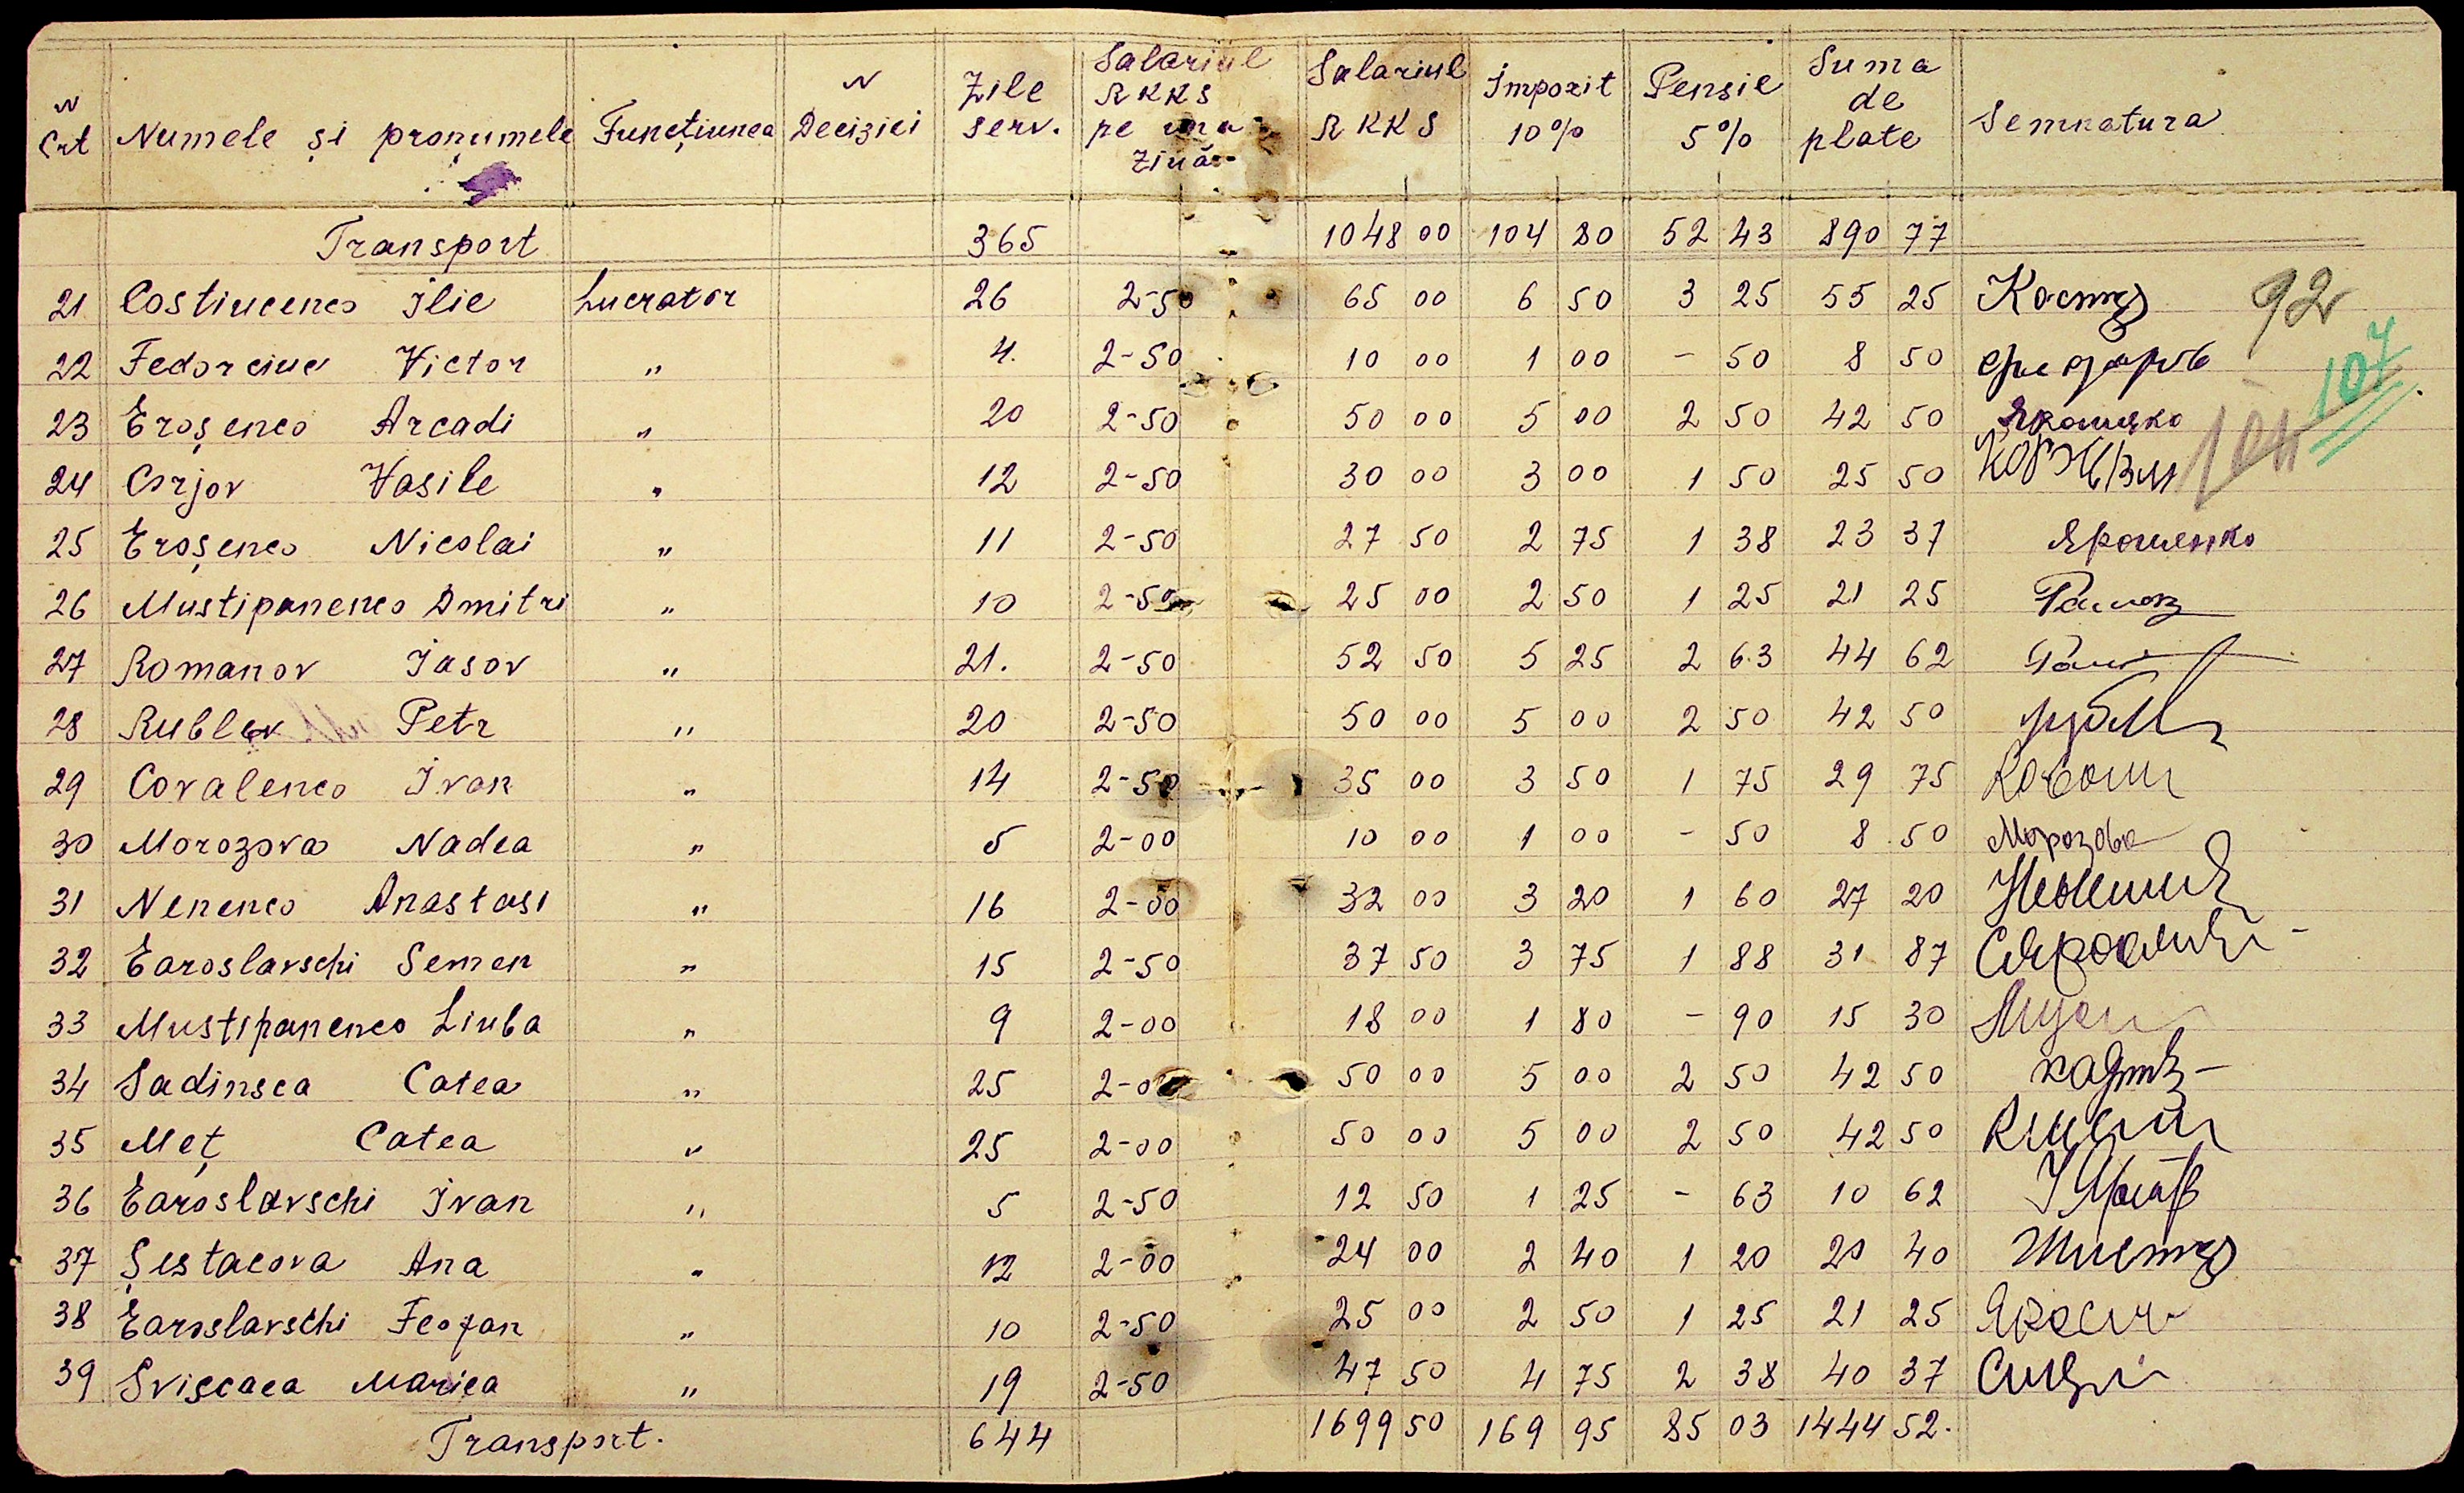 N Crt Numele și pronumele Funcțiunea N Deciziei Zile serv. Salariul RKKS pe una zină Salariul RKKS Impozit 10% Pensie 5% Suma de plate Semnatura
Transport 365 1048 00 104 80 52 43 890 77
21 Costiucenco Ilie Lucrator 26 2-50 65 00 6 50 3 25 55 25 92
22 Fedorciuc Victor " 4. 2-50 10 00 1 00 - 50 8 50 107
23 Eroșenco Arcadi " 20 2-50 50 00 5 00 2 50 42 50
24 Corjov Vasile " 12 2-50 30 00 3 00 1 50 25 50 104
25 Eroșenco Nicolai " 11 2-50 27 50 2 75 1 38 23 37 Ярошенко
26 Mustipanenco Dmitri " 10 2-50 25 00 2 50 1 25 21 25
27 Romanov Iasov " 21. 2-50 52 50 5 25 2 63 44 62
28 Rublev Petr " 20 2-50 50 00 5 00 2 50 42 50
29 Covalenco Ivan " 14 2-50 35 00 3 50 1 75 29 75
30 Morozova Nadea " 5 2-00 10 00 1 00 - 50 8 50 Морозова
31 Nenenco Anastasi " 16 2-00 32 00 3 20 1 60 27 20
32 Earoslavschi Semen " 15 2-50 37 50 3 75 1 88 31 87
33 Mustipanenco Liuba " 9 2-00 18 00 1 80 - 90 15 30
34 Sadinsca Catea " 25 2-00 50 00 5 00 2 50 42 50
35 Meț Catea " 25 2-00 50 00 5 00 2 50 42 50
36 Earoslavschi Ivan " 5 2-50 12 50 1 25 - 63 10 62
37 Șestacova Ana " 12 2-00 24 00 2 40 1 20 20 40
38 Earoslavschi Feofan " 10 2-50 25 00 2 50 1 25 21 25
39 Svișcaea Mariea " 19 2-50 47 50 4 75 2 38 40 37
Transport. 644 1699 50 169 95 85 03 1444 52.